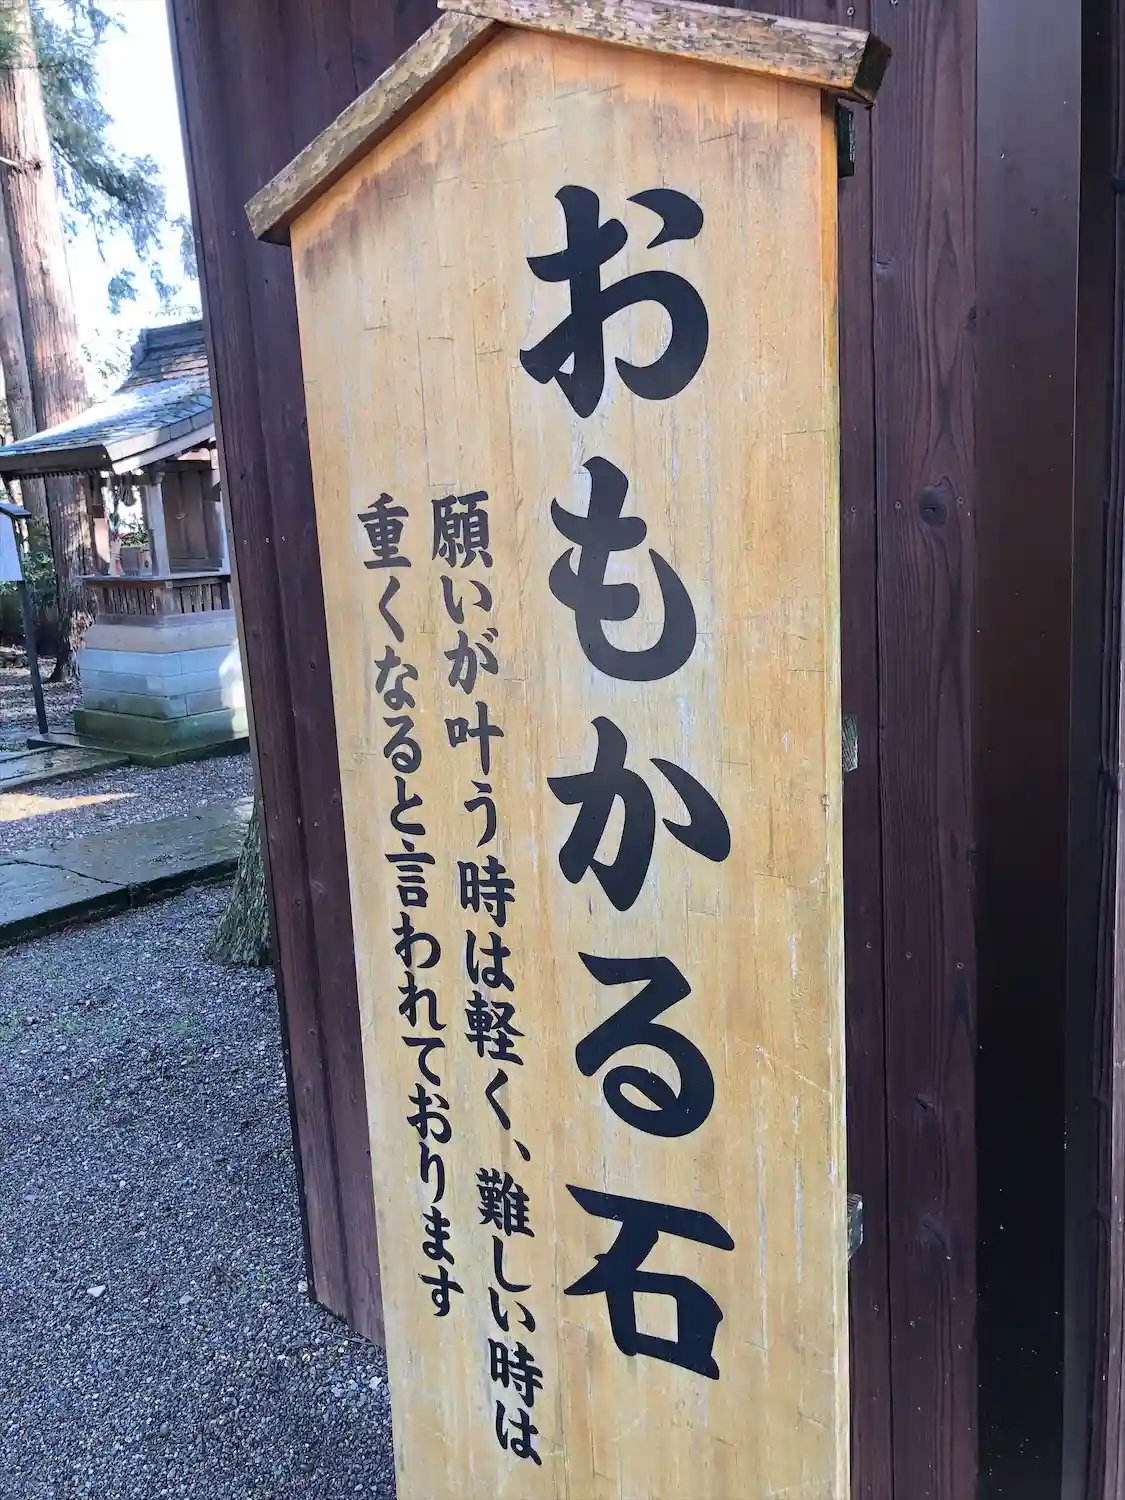 おもかる石
願いが叶う時は軽く、難しい時は
重くなると言われております